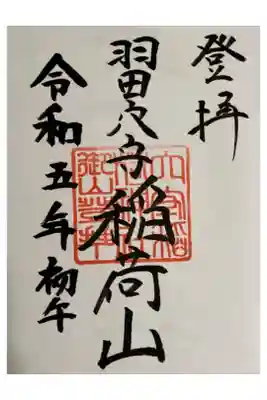 登拝
羽田穴守稲荷山
令和五年初午